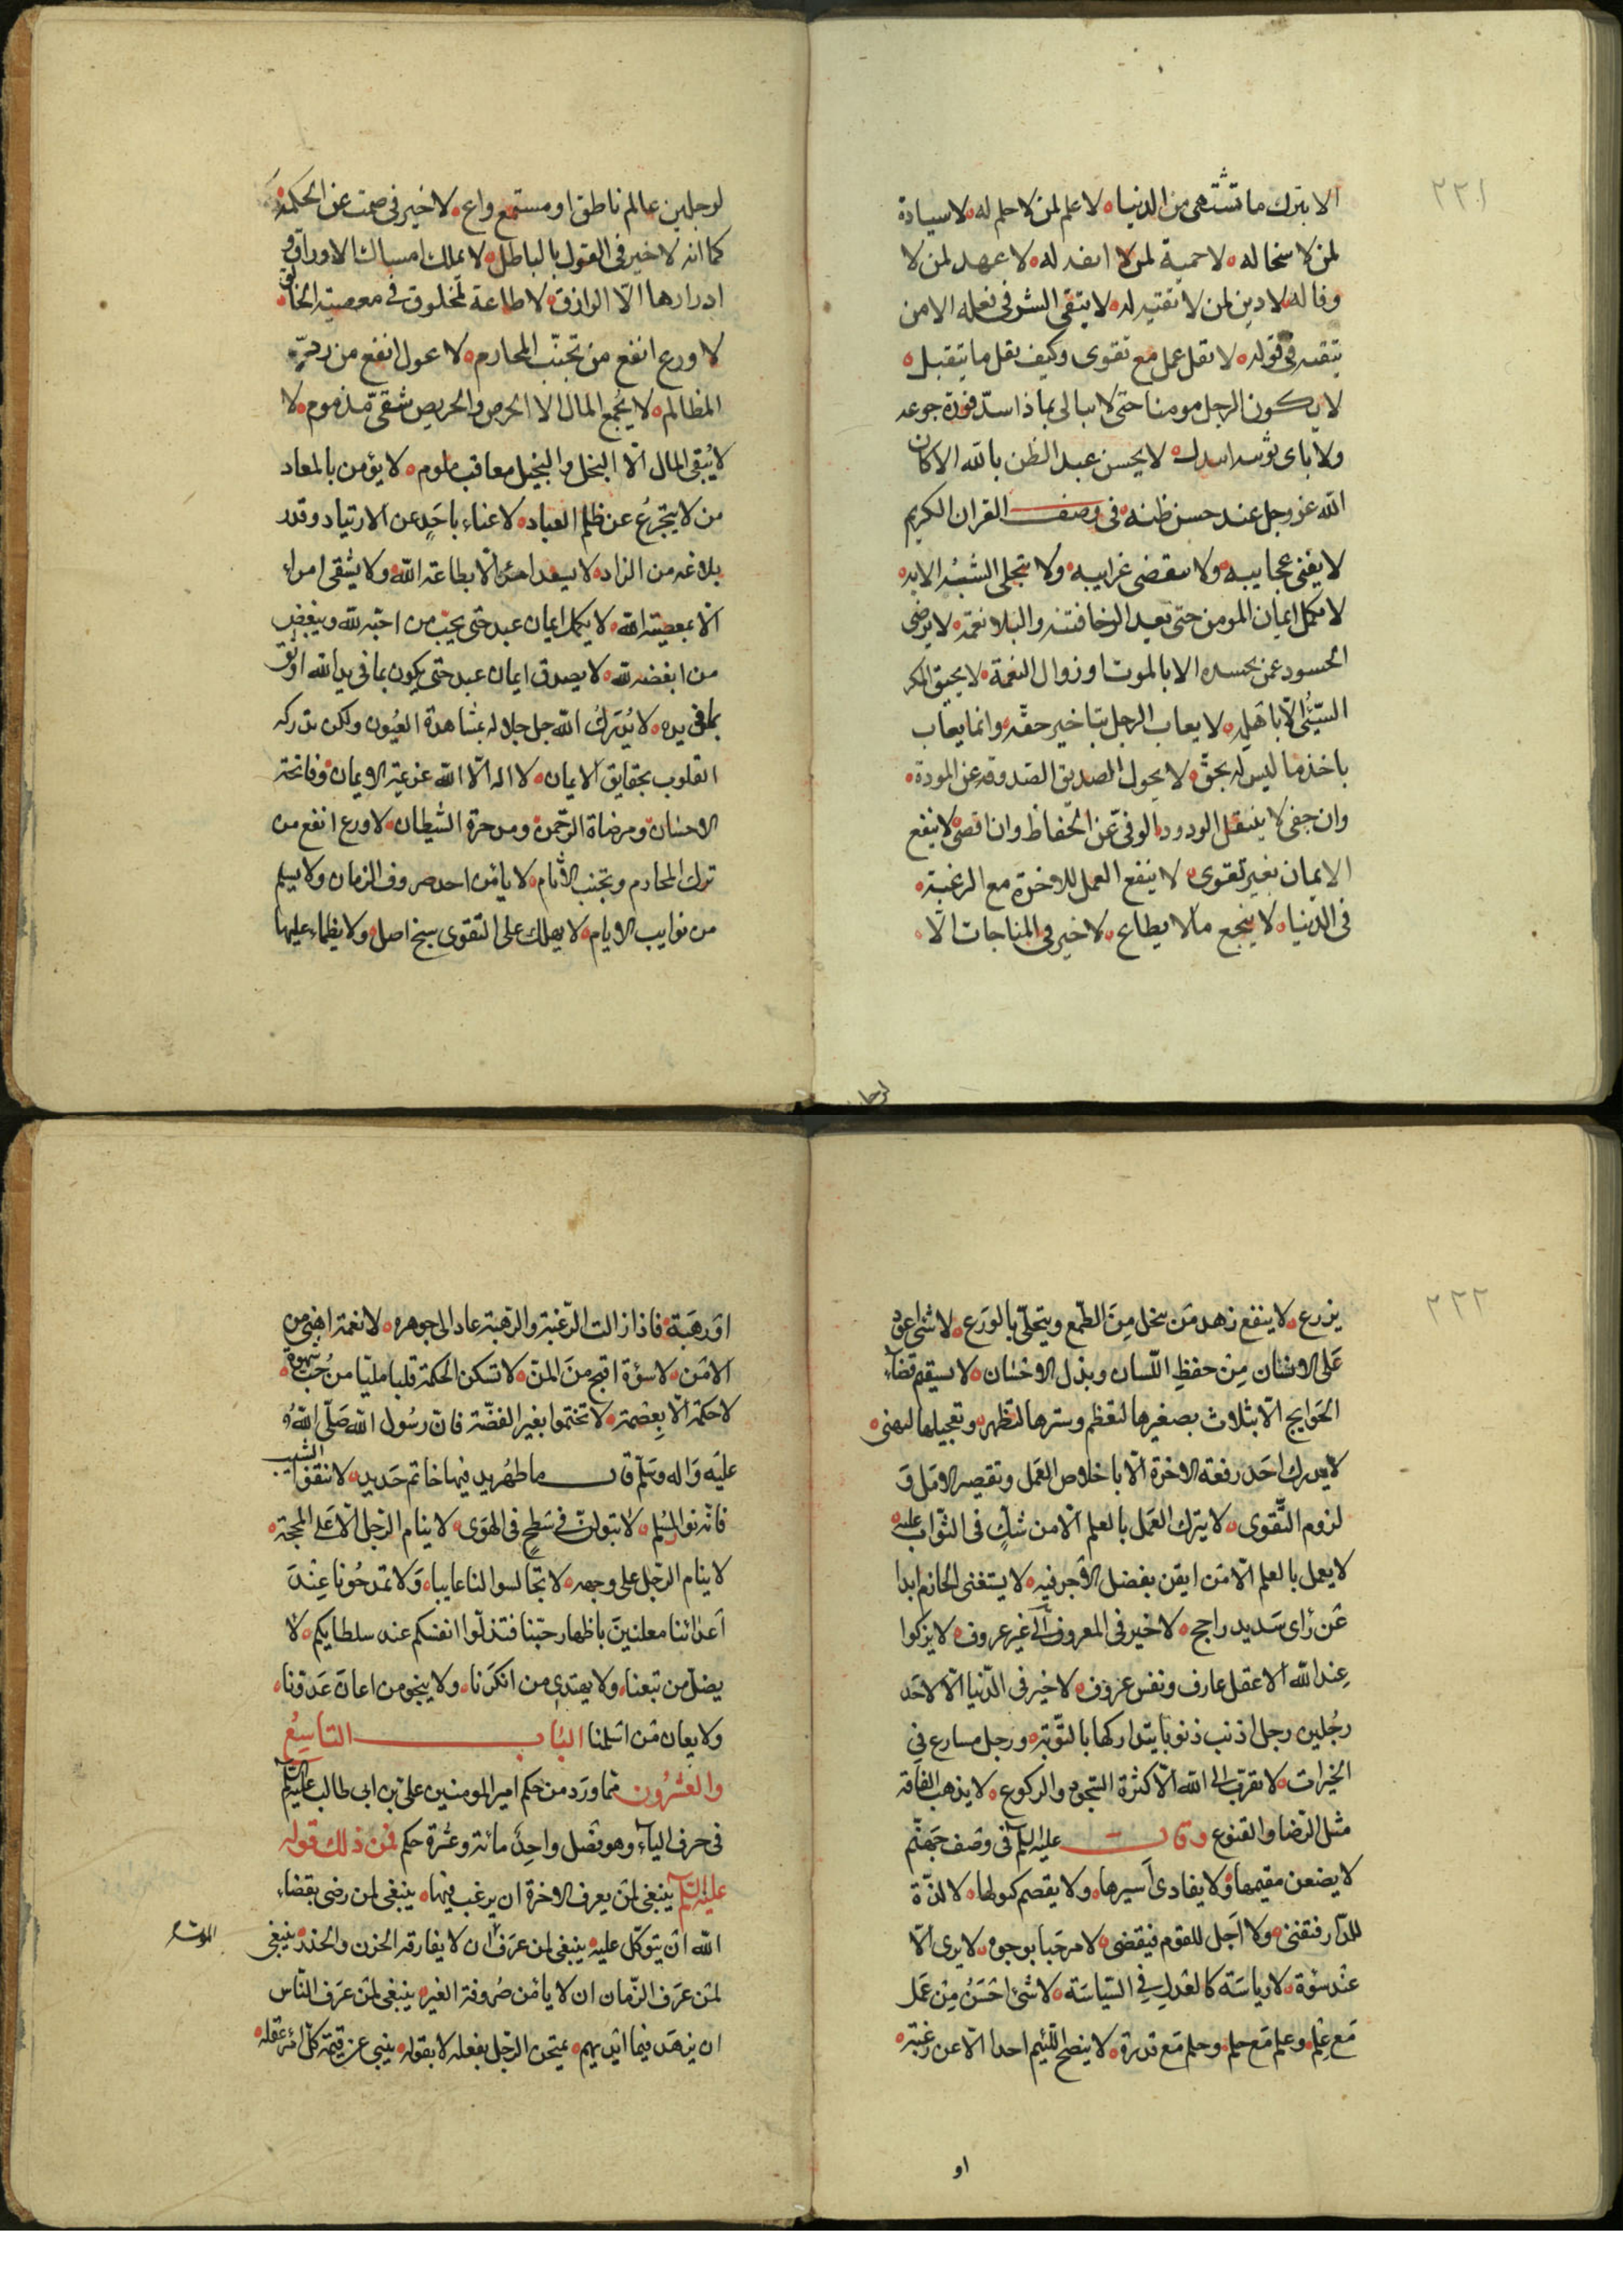 ٢٢١
الا بترك ما تشتهى من الدنيا لا علم لمن لا حلم له لا سيادة
لمن لا سخا له لا حمية لمن لا انفه له لا عهد لمن لا
وفا له لا دين لمن لا تقيه له لا يتقى الشر فى فعله الا من
يتقيه فى قوله لا يقل عمل مع تقوى وكيف يقل ما يتقبل
لا يكون الرجل مومنا حتى لا يبالى بماذا سد فورة جوعه
ولا باى ثوبيه ابتدل لا يحسن عبد الظن بالله الا كان
الله عز وجل عند حسن ظنه فى وصف القران الكريم
لا يفنى عجايبه ولا ينقضى غرايبه ولا تنجلى الشبه الا به
لا يكمل ايمان المومن حتى يعد الرخا فتنه والبلا نعمة لا يرضى
الحسود عمن يحسده الا بالموت او زوال النعمة لا يحيق المكر
السيّئ الا باهله لا يعاب الرجل بتاخير حقه وانما يعاب
باخذ ما ليس له بحقّ لا يحول الصديق الصدوق عن المودة
وان جفى لا ينتقل الودود الوفىّ عن الحفاظ وان اقصى لا ينفع
الايمان بغير تقوى لا ينفع العمل للاخرة مع الرغبة
فى الدنيا لا ينجع ما لا يطاع لا خير فى المناجات الّا
لرجلين
لرجلين عالم ناطق او مستمع واع لا خير فى صمت عن الحكمة
كما انه لا خير فى القول بالباطل لا يملك امساك الاوراق و
ادرارها الّا الرازق لا طاعة لمخلوق فى معصية الخالق
لا ورع انفع من تجنّب المحارم لا عدل انفع من ردّ
المظالم لا يجمع المال الا الحرص والحريص شقىّ مذموم لا
لا يُبقى المال الّا البخل والبخيل معاقب ملوم لا يؤمن بالمعاد
من لا يتحرج عن ظلم العباد لا غناء باحدٍ عن الارتياد وقدر
بلاغه من الزاد لا يسعد امرئ الّا بطاعة الله ولا يشقى امراء
الّا بمعصية الله لا يكمل ايمان عبد حتى يحبّ من احبّه لله ويبغض
من ابغضه لله لا يصدق ايمان عبد حتى يكون بما فى يد الله اوثق
بما فى يده لا يُدركُ الله جل جلاله بمشاهدة العيُون ولكن تدركه
القلوب بحقايق الايمان لا اله الّا الله عزيمة الايمان وفاتحة
الاحسان ومرضاة الرحمن ومدحرة الشيطان لا ورع انفع من
ترك المحارم وتجنب الاثام لا يأمن احد صروف الزمان ولا يسلم
من نوايب الايام لا يهلك على التقوى سنخ اصل ولا يظماء عليها
٢٢٢
يزرع لا ينفع زهد مَن يخل مِنَ الطّمع ويتحلّى بالوَرَع لا شئ اعود
عَلى الانسَان مِن حفظِ اللّسان وبذل الاحسَان لا يستقيم قضاء
الحَوايج الّا بثلاث بصغيرها لتعظم وسترها لتظهر وتعجيلها لتهنى
لا يدرك احَد رفعة الاخرة الّا باخلاص العَمل وتقصير الامَل وَ
لزوم التّقوى لا يترك العَمل بالعلم الّا من شكّ فى الثّواب عليه
لا يعمل بالعلم الّا مَن ايقن بفضل الاجر فيه لا يستغنى الحازم ابدا
عَن رَاى سَديد راجح لا خير فى المعروف الى غير عروف لا يزكوا
عِند الله الا عقل عارف ونفس عزوف لا خير فى الدّنيا الّا لاحَد
رجُلين رجل اذنب ذنوبا يتداركها بالتّوبة ورجل مسارع فى
الخيرات لا تقرب الى الله الّا كثرة السّجود والركوع لا يذهب الفاقة
مثل الرّضا والقنوع وقال عليه السلم فى وصف جَهنّم
لا يضعن مقيمها ولا يفادى اَسيرها ولا يقصم كبولها لا مدّة
للدّار فتفنى ولا اَجل للقوم فيقضى لا مرحَبا بوجوه لا يرى الّا
عنْد سوْة لا رياسَة كالعَدل فى السّياسَة لا شئ احْسَنُ مِن عَمل
مَع عِلم وعلم مَع حلم وحلم مَع قدرة لا ينصح اللّئيم احدا الّا عن رغبة
او
اوْ رهبَة فاذا زالت الرّغبة والرّهبة عاد الى جوهره لا نعمة اهنى من
الامْن لا سوْة اقبح منَ المنّ لا تسكن الحكمة قلبا مليّا من حُبّ شهوة
لا حكمة الّا بِعصْمة لا تختموا بغير الفضّة فانّ رسُول الله صَلّى اللهُ
عليَه وَاله وسَلّم قال ما طهُر يد فيها خاتم حَديد لا تنتفوا الشيب
فانّه نور المسُلم لا تبولنّ فى سَطحٍ فى الهوَى لا ينام الرّجل الّا عَلى المحجة
لا ينام الرّجل على وجهه لا تجالسوا لنا عايبا وَلا تمدحُونا عِنْدَ
اَعدَائنا معلنينَ باظهار حبّنا فتذلّوا انفسكم عند سلطانكم لا
يضلّ من تبعنا ولا يهتدى من انكَرنا ولا ينجو من اعان عَدوّنا
ولا يعان مَن اسْلمنا البَاب التاسِعُ
والعشرُون ممّا ورَد من حكم امير المومنين على بن ابى طالب عليه السلم
فى حرف الياء وهو فصْل واحِد مائة وعشرة حكم فمن ذلك قوله
عليه السلم ينبغى لمَن يعرف الاخرة ان يرغب فيها ينبغى لمن رضى بقضاء
الله انْ يتوكّل عليه ينبغى لمن عرَف ان لا يفارقه الحزن والحذر ينبغى
لمَن عرَف الزّمان ان لا يامَن صُروفه الغير ينبغى لمَن عرَف النّاس
ان يزهَد فيما ايْديهم يمتحن الرّجل بفعله لا بقوله ينبى عن قيمة كلّ امرء عقله